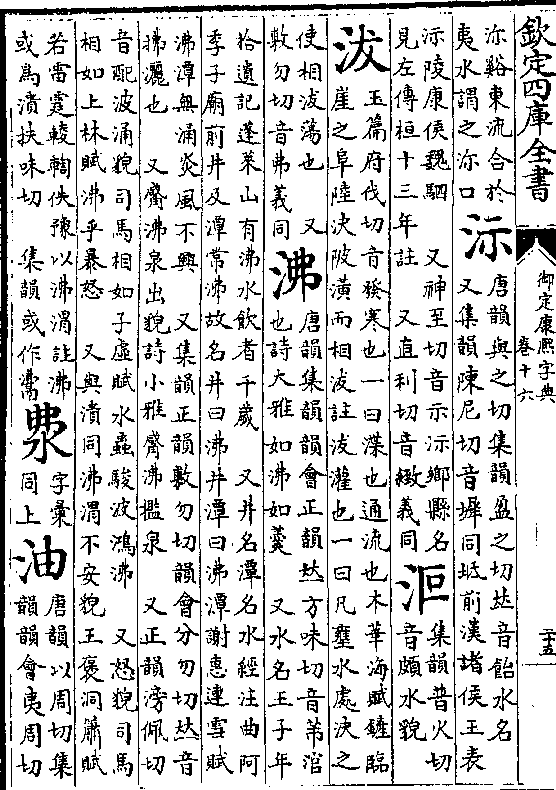 欽定四庫全書
御定康熙字典
卷十六
二十五
沵谿東流合於
夷水謂之沵口
沶
唐韻與之切集韻盈之切𠀤音飴水名
又集韻陳尼切音墀同坻前漢諸侯王表
沶陵康侯魏駟 又神至切音示沶鄉縣名
見左傳桓十三年註 又直利切音緻義同
集韻普火切
音頗水貌
沷
玉篇府伐切音發寒也一曰渫也通流也木華海賦鏟臨
崖之阜陸決陂潢而相沷註沷灌也一曰凡壅水處決之
使相沷蕩也 又
敷勿切音弗義同
沸
唐韻集韻韻會正韻𠀤方味切音芾涫
也詩大雅如沸如羹 又水名王子年
拾遺記蓬萊山有沸水飲者千歲 又井名潭名水經注曲阿
季子廟前井及潭常沸故名井曰沸井潭曰沸潭謝惠連雪賦
沸潭無涌炎風不興 又集韻正韻敷勿切韻會分勿切𠀤音
拂灑也 又觱沸泉出貌詩小雅觱沸檻泉 又正韻滂佩切
音配波涌貌司馬相如子虛賦水蟲駭波鴻沸 又怒貌司馬
相如上林賦沸乎暴怒 又與濆同沸渭不安貌王褒洞簫賦
若雷霆輘輷佚豫以沸渭註沸
或為濆扶味切 集韻或作
字彙
同上
油
唐韻以周切集
韻韻會夷周切